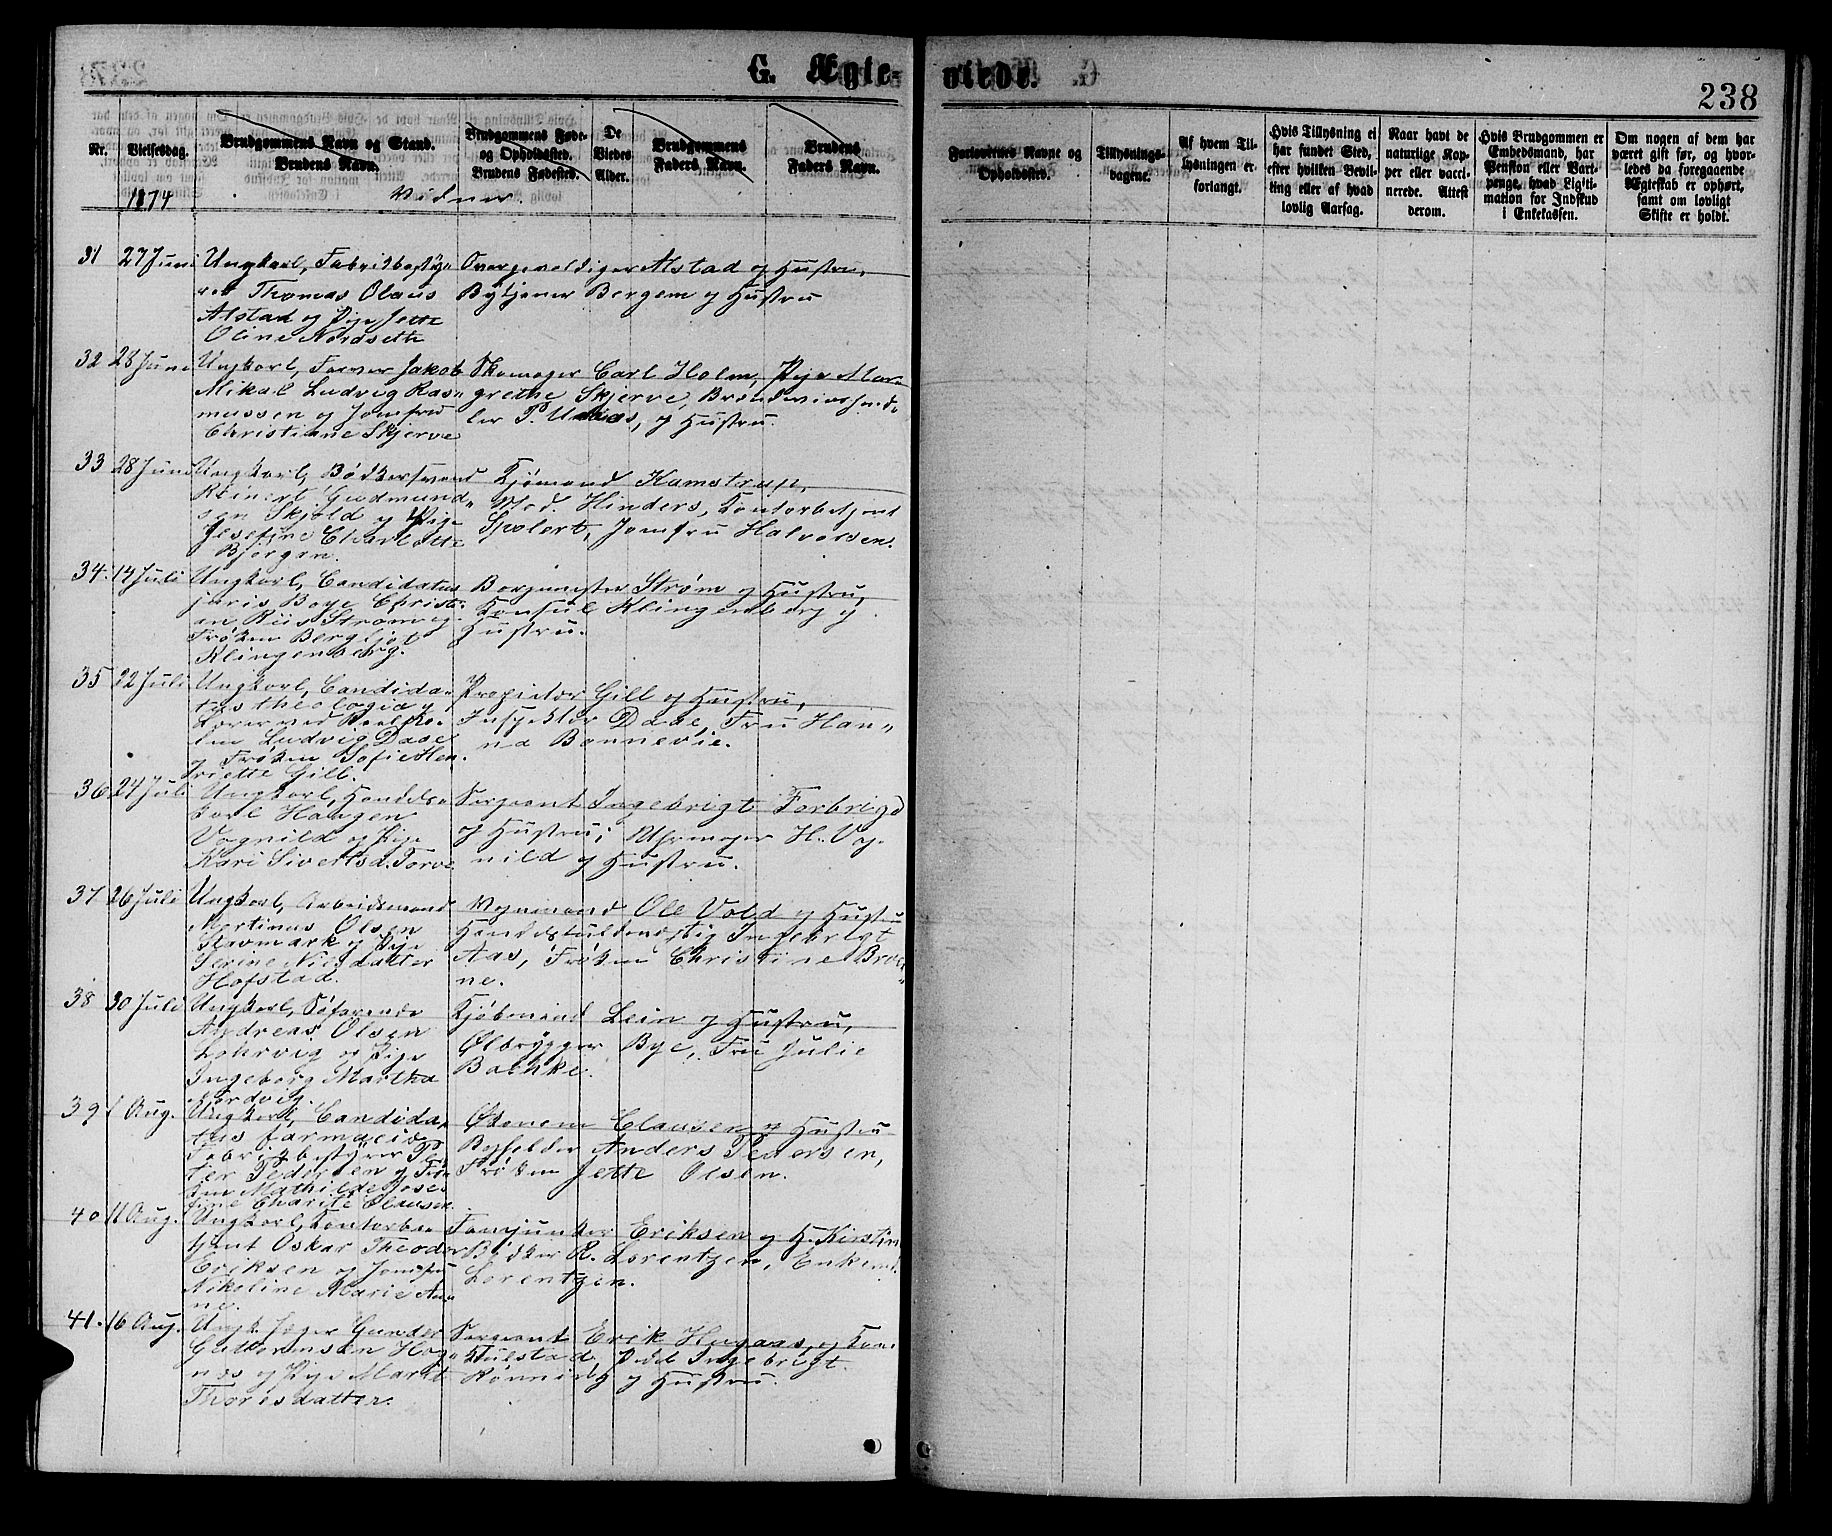 G. Ægte-
viede.
238
Nr.
Vielsesdag.
Brudgommens Navn og Stand.
Brudens Navn.
Brudgommens Føde-
og Opholdssted.
Brudens Fødested.
De
Viedes
Alder.
Brudgommens
Faders Navn.
Brudens
Faders Navn.
Forlovernes Navne og
Opholdssted.
Tillysnings-
dagene.
Af hvem Til-
lysningen er
forlangt.
Hvis Tillysning ei
har fundet Sted,
efter hvilken Bevil-
ling eller af hvad
lovlig Aarsag.
Naar havt de
naturlige Kop-
per eller vacci-
nerede. Attest
derom.
Hvis Brudgommen er
Embedsmand, har
Pension eller Vart-
penge, hvad Ligiti-
mation for Indskud
i Enkekassen.
Om nogen af dem har
været gift før, og hvor-
ledes da foregaaende
Ægteskab er ophørt,
samt om lovligt
Skifte er holdt.
1874
Vidner.
31 27 Juni Ungkarl, Fabrikbesty-
rer Thomas Olaus
Alstad og Pige Jette
Oline Nordseth
Overgevaldiger Alstad og Hustru,
Bytjener Bergem og Hustru
32 28 Juni Ungkarl, Farver Jakob
Mikal Ludvig Ras-
mussen og Jomfru
Christiane Skjerve
Skomager Carl Holm, Pige Mar-
grethe Skjerve, Brændeviinshand-
ler P. og Hustru.
33 28 Juni Ungkarl, Bødkersvend
Reinert Gudmund-
sen Skjold og Pige
Josefine Charlotte
Bjørgan.
Kjømand Kamstrup,
Mad. Hinders, Kontorbetjent
Spolert, Jomfru Halvorsen.
34. 14 Juli Ungkarl, Candidatus
juris Boye Christi-
an Riis Strøm og
Frøken Bergljot
Klingenberg.
Borgemester Strøm og Hustru,
Konsul Klingenberg og
Hustru.
35 22 Juli Ungkarl, Candida-
tus theologia og
Lærer ved Realsko-
len Ludvig Daae
og Frøken Sofie Hen-
riette Gill.
Proprietær Gill og Hustru,
Inspektør Daae, Fru Han-
na Bonnevie.
36 24 Juli Ungkarl, Handels-
karl Haagen
Vognild og Pige
Kari Sivertsd. Torve
Sergeant Ingebrigt Forbrigd
og Hustru; Uhrmager H. Vog-
nild og Hustru.
37 26 Juli Ungkarl, Arbeidsmand
Martinus Olsen
og Pige
Serine Nilsdatter
Hofstad.
Vognmand Ole Vold og Hustru
Ingebrigt
Aas, Frøken Christine
ne.
38 30 Juli Ungkarl, Søfarende
Andreas Olsen
og Pige
Ingeborg Martha
Nordvig.
Kjøbmand Lein og Hustru,
Ølbrygger Bye, Fru Julie
Bachke.
39 1 Aug. Ungkarl, Candida-
tus farmacie
Fabrikbestyrer Pe-
ter Pedersen og Frø-
ken Mathilde Jose-
fine Charite Clausen.
Økonom Clausen og Hustru
Byfolder Anders Pedersen,
Frøken Jette Olsen.
40 11 Aug. Ungkarl, Kontorbe-
tjent Oskar Theodor
Eriksen og Jomfru
Nikoline Marie An-
ne.
Fanejunker Eriksen og H. Kirstin
Bødker R. Lorentzen, Enkemd
Lorentzen.
41. 16 Aug. Ungk. Jæger Gunder
Guttormsen Hag-
næs og Pige Marit
Thoresdatter.
Sergeant Erik Hagaas, og
Ingebrigt
Rønning og Hustru.